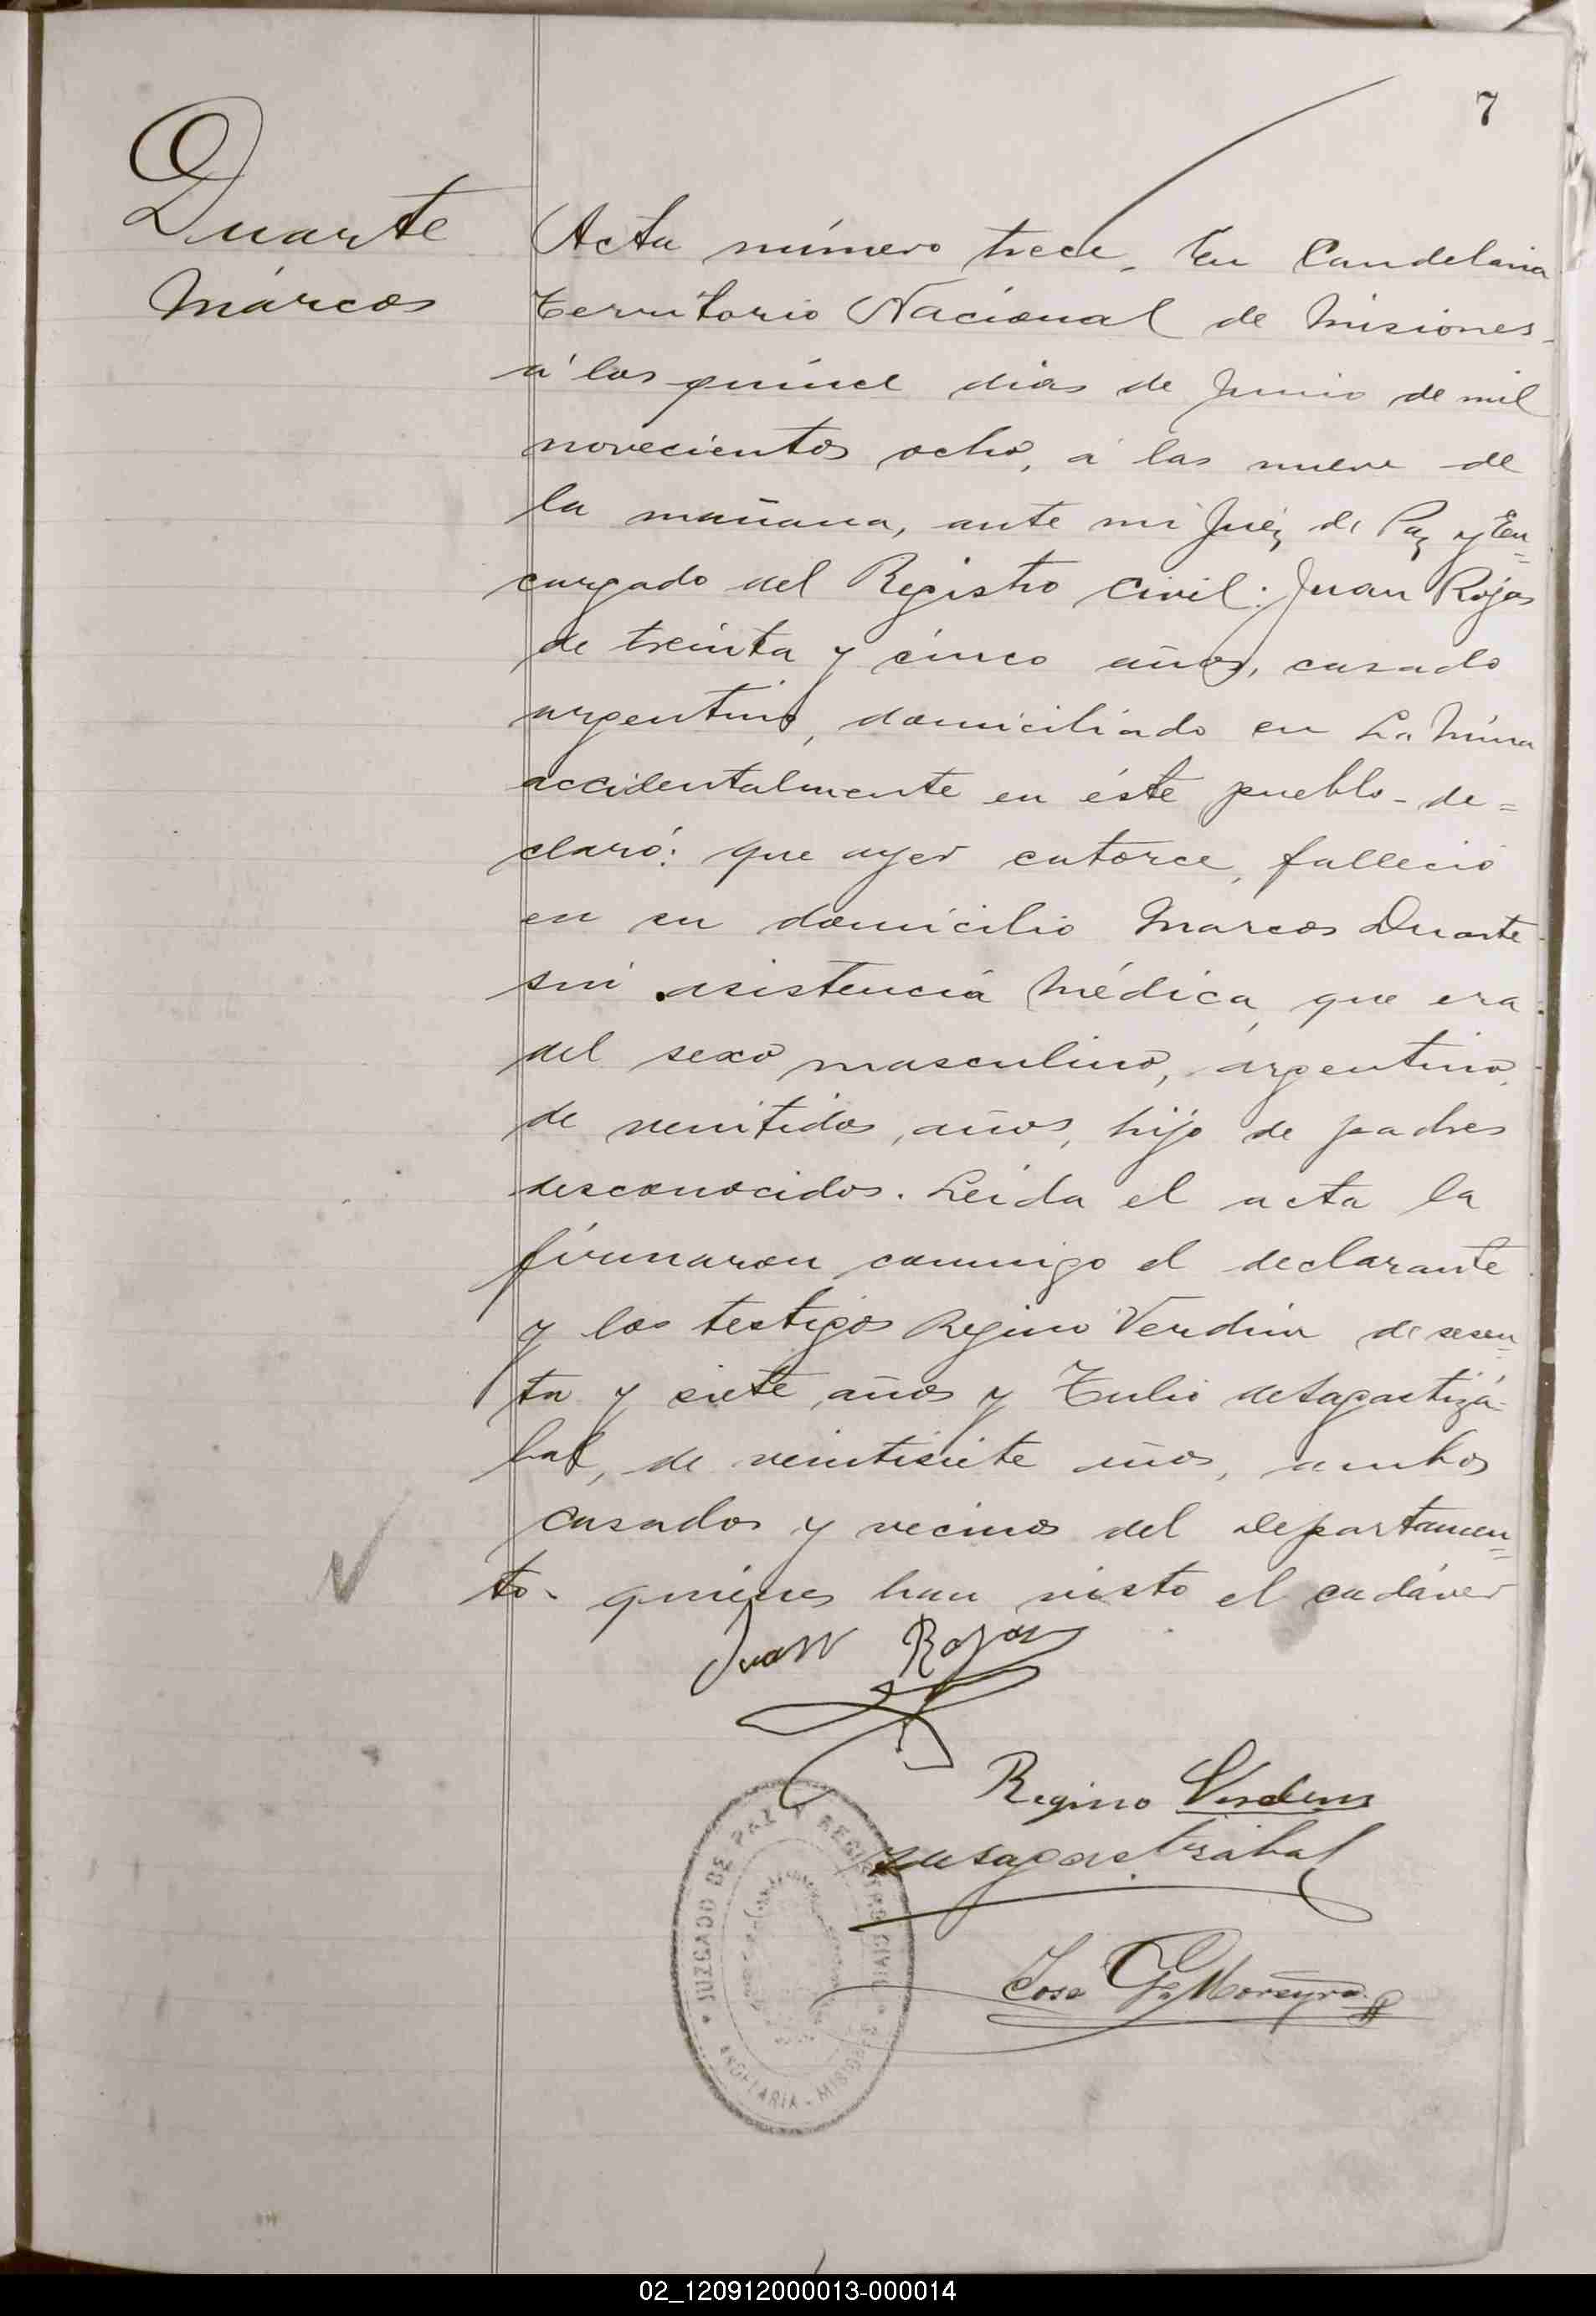 7
Duarte
Márcos
Acta número trece. En Candelaria
Territorio Nacional de Misiones
á los quince dias de Junio de mil
novecientos ocho, á las nueve de
la mañana, ante mi Juéz de Paz y En=
cargado del Registro Civil: Juan Rojas
de treinta y cinco años, casado
argentino, domiciliado en La Mina
accidentalmente en éste pueblo - de=
claró: que ayer catorce, falleció
en su domicilio Marcos Duarte
sin asistencia Médica, que era
del sexo masculino, argentino,
de venitidos, años, hijo de padres
desconocidos. Leida el acta la
firmaron conmigo el declarante
y los testigos Regino Verdun de sesen=
ta y siete, años y Tulio de Sagastizá-
bal, de veintisiete años, ambos
casados y vecinos del departamen=
to - quienes han visto el cadáver
Juan Rojas
Regino Verdun
de Sagastizabal
Jose Ga Moreyra
JUZGADO DE PAZ Y REGISTRO CIVIL
CANDELARIA - MISIONES
02_120912000013-000014